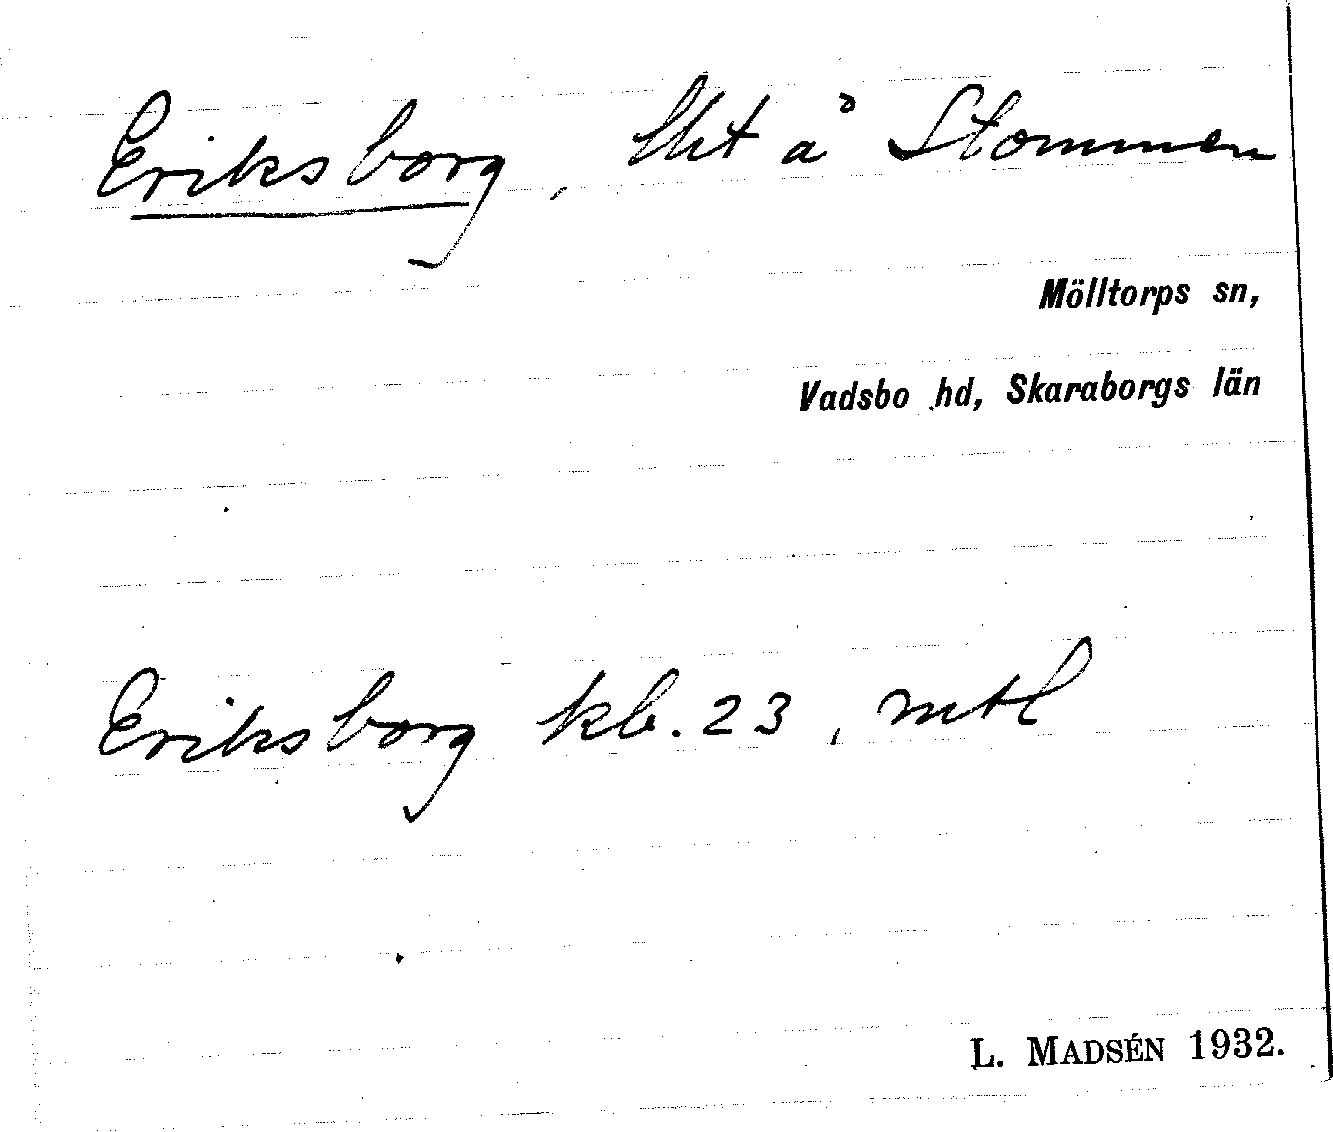 Eriksborg, lht å Stommen
Mölltorps sn,
Vadsbo hd, Skaraborgs län
Eriksborg kb. 23, mtl
L. MADSÉN 1932.